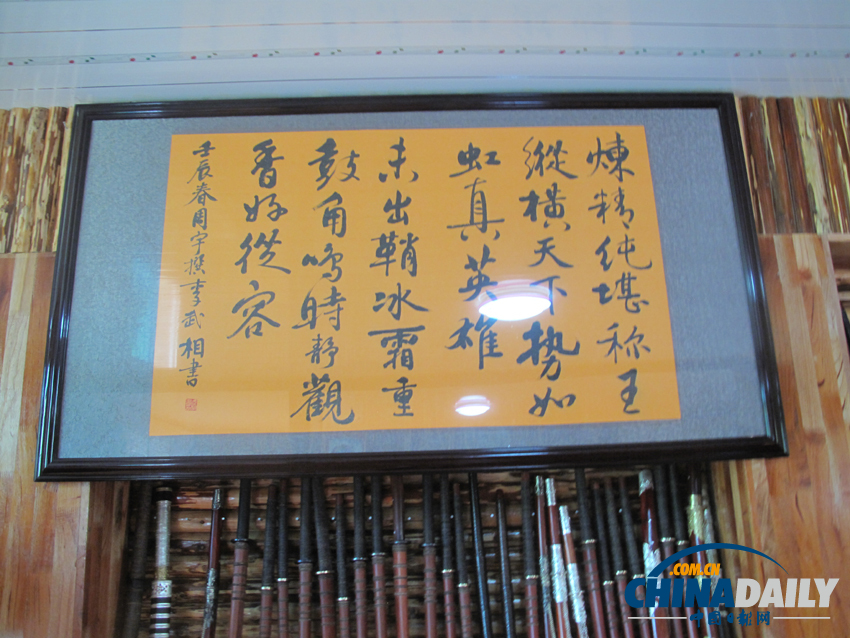 煉精純堪称王
縱橫天下勢如
虹真英雄
未出鞘冰霜重
鼓角鳴時靜觀
香好從容
壬辰春周宇撰李武相書
.COM.CN
CHINADAILY
中国日报网